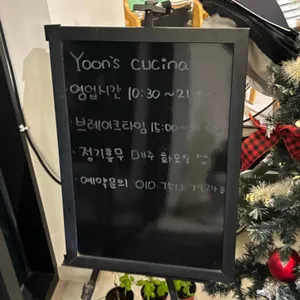 Yoon's cucina
· 영업시간 10:30 ~ 21:
· 브레이크타임 15:00 ~
· 정기휴무 매주 화요일
· 예약문의 010.